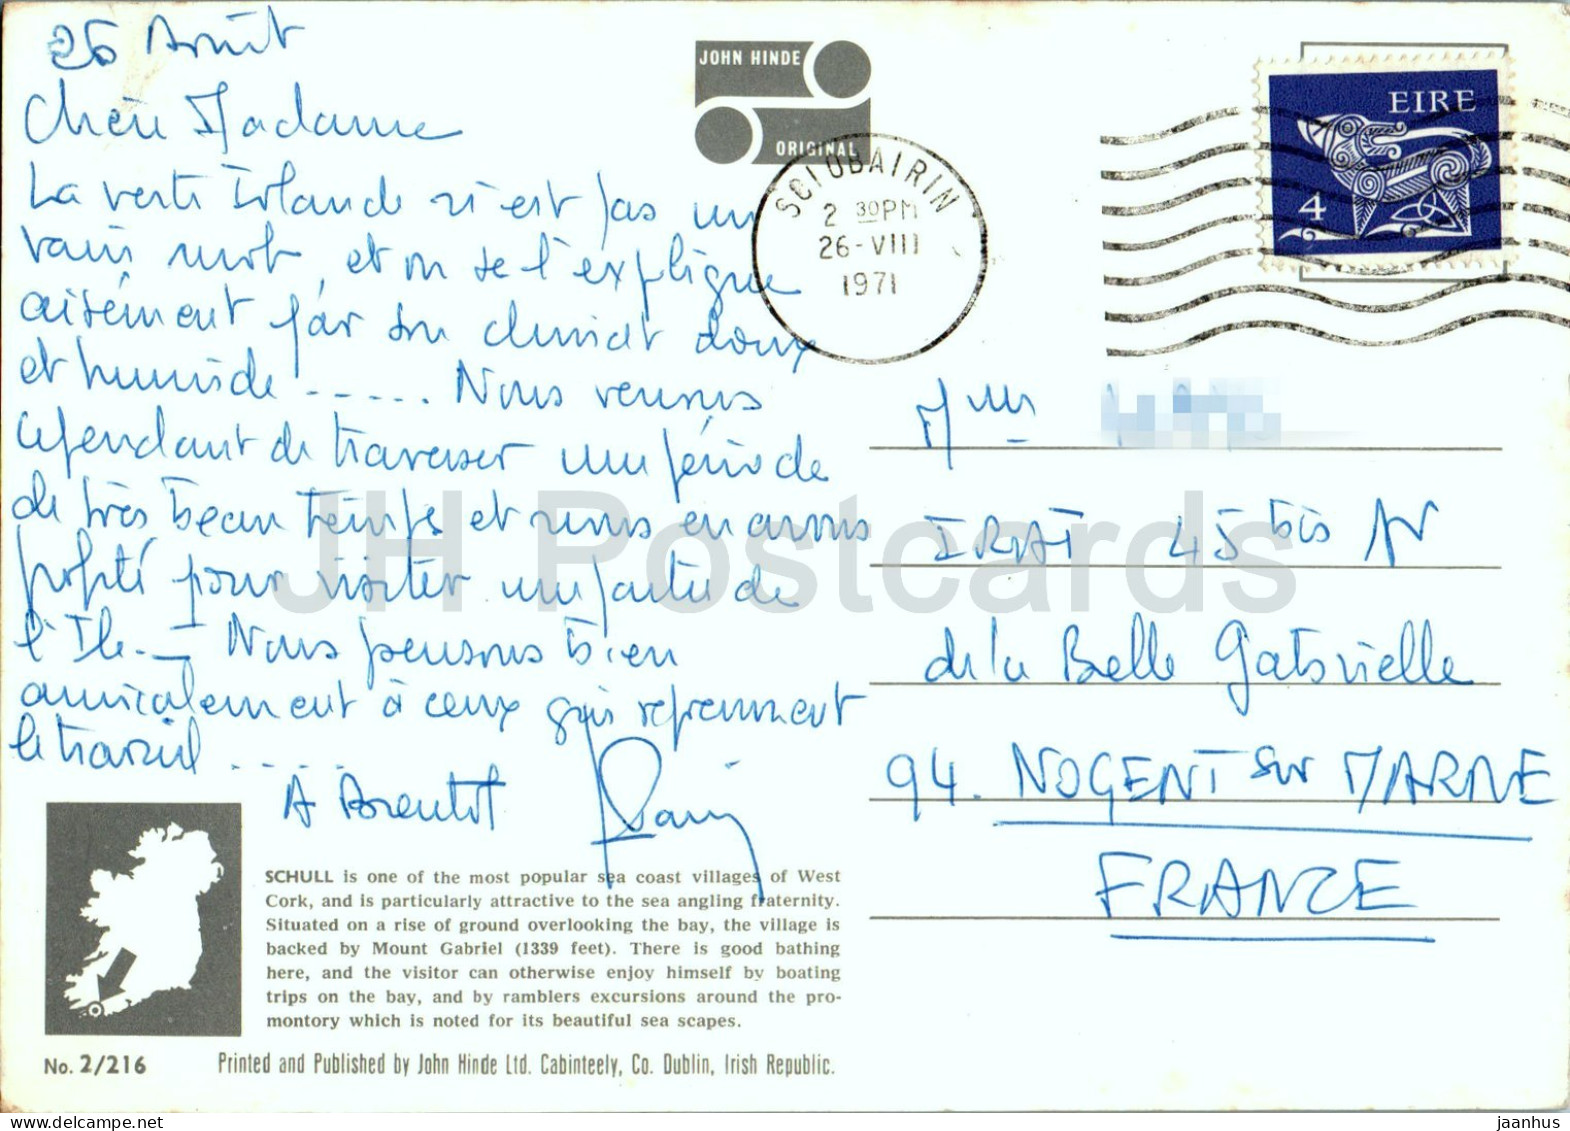 26 Août
Chère Madame
La verte Irlande n'est pas un
vain mot, et on se l'explique
aisément par son climat doux
et humide ...... Nous venons
cependant de traverser une période
de très beau temps et nous en avons
profité pour visiter une partie de
l'Ile. — Nous pensons bien
amicalement à ceux qui reprennent
le travail .....
A Bientôt
JOHN HINDE
ORIGINAL
SCIOBAIRIN
2 30PM
26-VIII
1971
EIRE
4
IRAT 45 bis Av
de la Belle Gabrielle
94. NOGENT sur MARNE
FRANCE
SCHULL is one of the most popular sea coast villages of West
Cork, and is particularly attractive to the sea angling fraternity.
Situated on a rise of ground overlooking the bay, the village is
backed by Mount Gabriel (1339 feet). There is good bathing
here, and the visitor can otherwise enjoy himself by boating
trips on the bay, and by ramblers excursions around the pro-
montory which is noted for its beautiful sea scapes.
No. 2/216
Printed and Published by John Hinde Ltd. Cabinteely, Co. Dublin, Irish Republic.
JH Postcards
www.delcampe.net
jaanhus